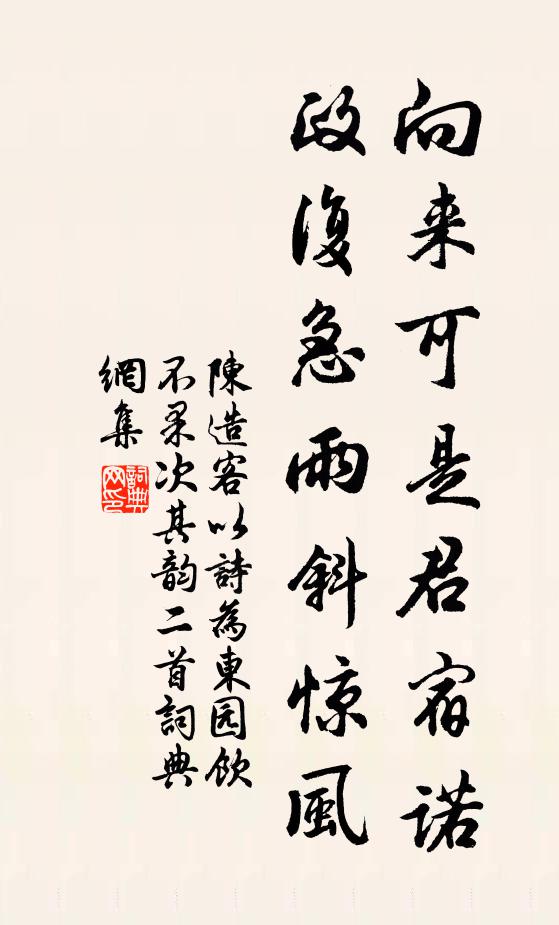 向来可是君宿诺
政復急雨斜惊風
陳造客以詩為東园飲
不果次其韵二首詞典
網集
詞典网印